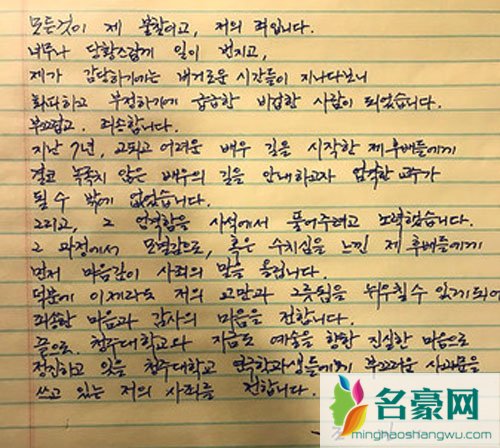 모든것이 제 불찰이고, 저의 죄입니다.
너무나 당황스럽게 일이 번지고,
제가 감당하기에는 버거로운 시간들이 지나다보니
회피하고 부정하기에 급급한 비겁한 사람이 되었습니다.
부끄럽고. 죄송합니다.
지난 7년, 고되고 어려운 배우 길을 시작한 제 후배들에게
결코 녹록지 않은 배우의 길을 안내하고자 엄격한 교수가
될 수 밖에 없었습니다.
그리고, 그 엄격함을 사석에서 풀어주려고 노력했습니다.
그 과정에서 모멸감으로, 혹은 수치심을 느낀 제 후배들에게
먼저 마음깊이 사죄의 말을 올립니다.
덕분에 이제라도 저의 교만과 그릇됨을 뉘우칠 수 있게되어
죄송한 마음과 감사의 마음을 전합니다.
끝으로. 청주대학교와 지금도 예술을 향한 진실한 마음으로
정진하고 있을 청주대학교 연극학과생들에게 부끄러운 사과문을
쓰고 있는 저의 사죄를 전합니다.
名豪网
minghaoshangwu.com